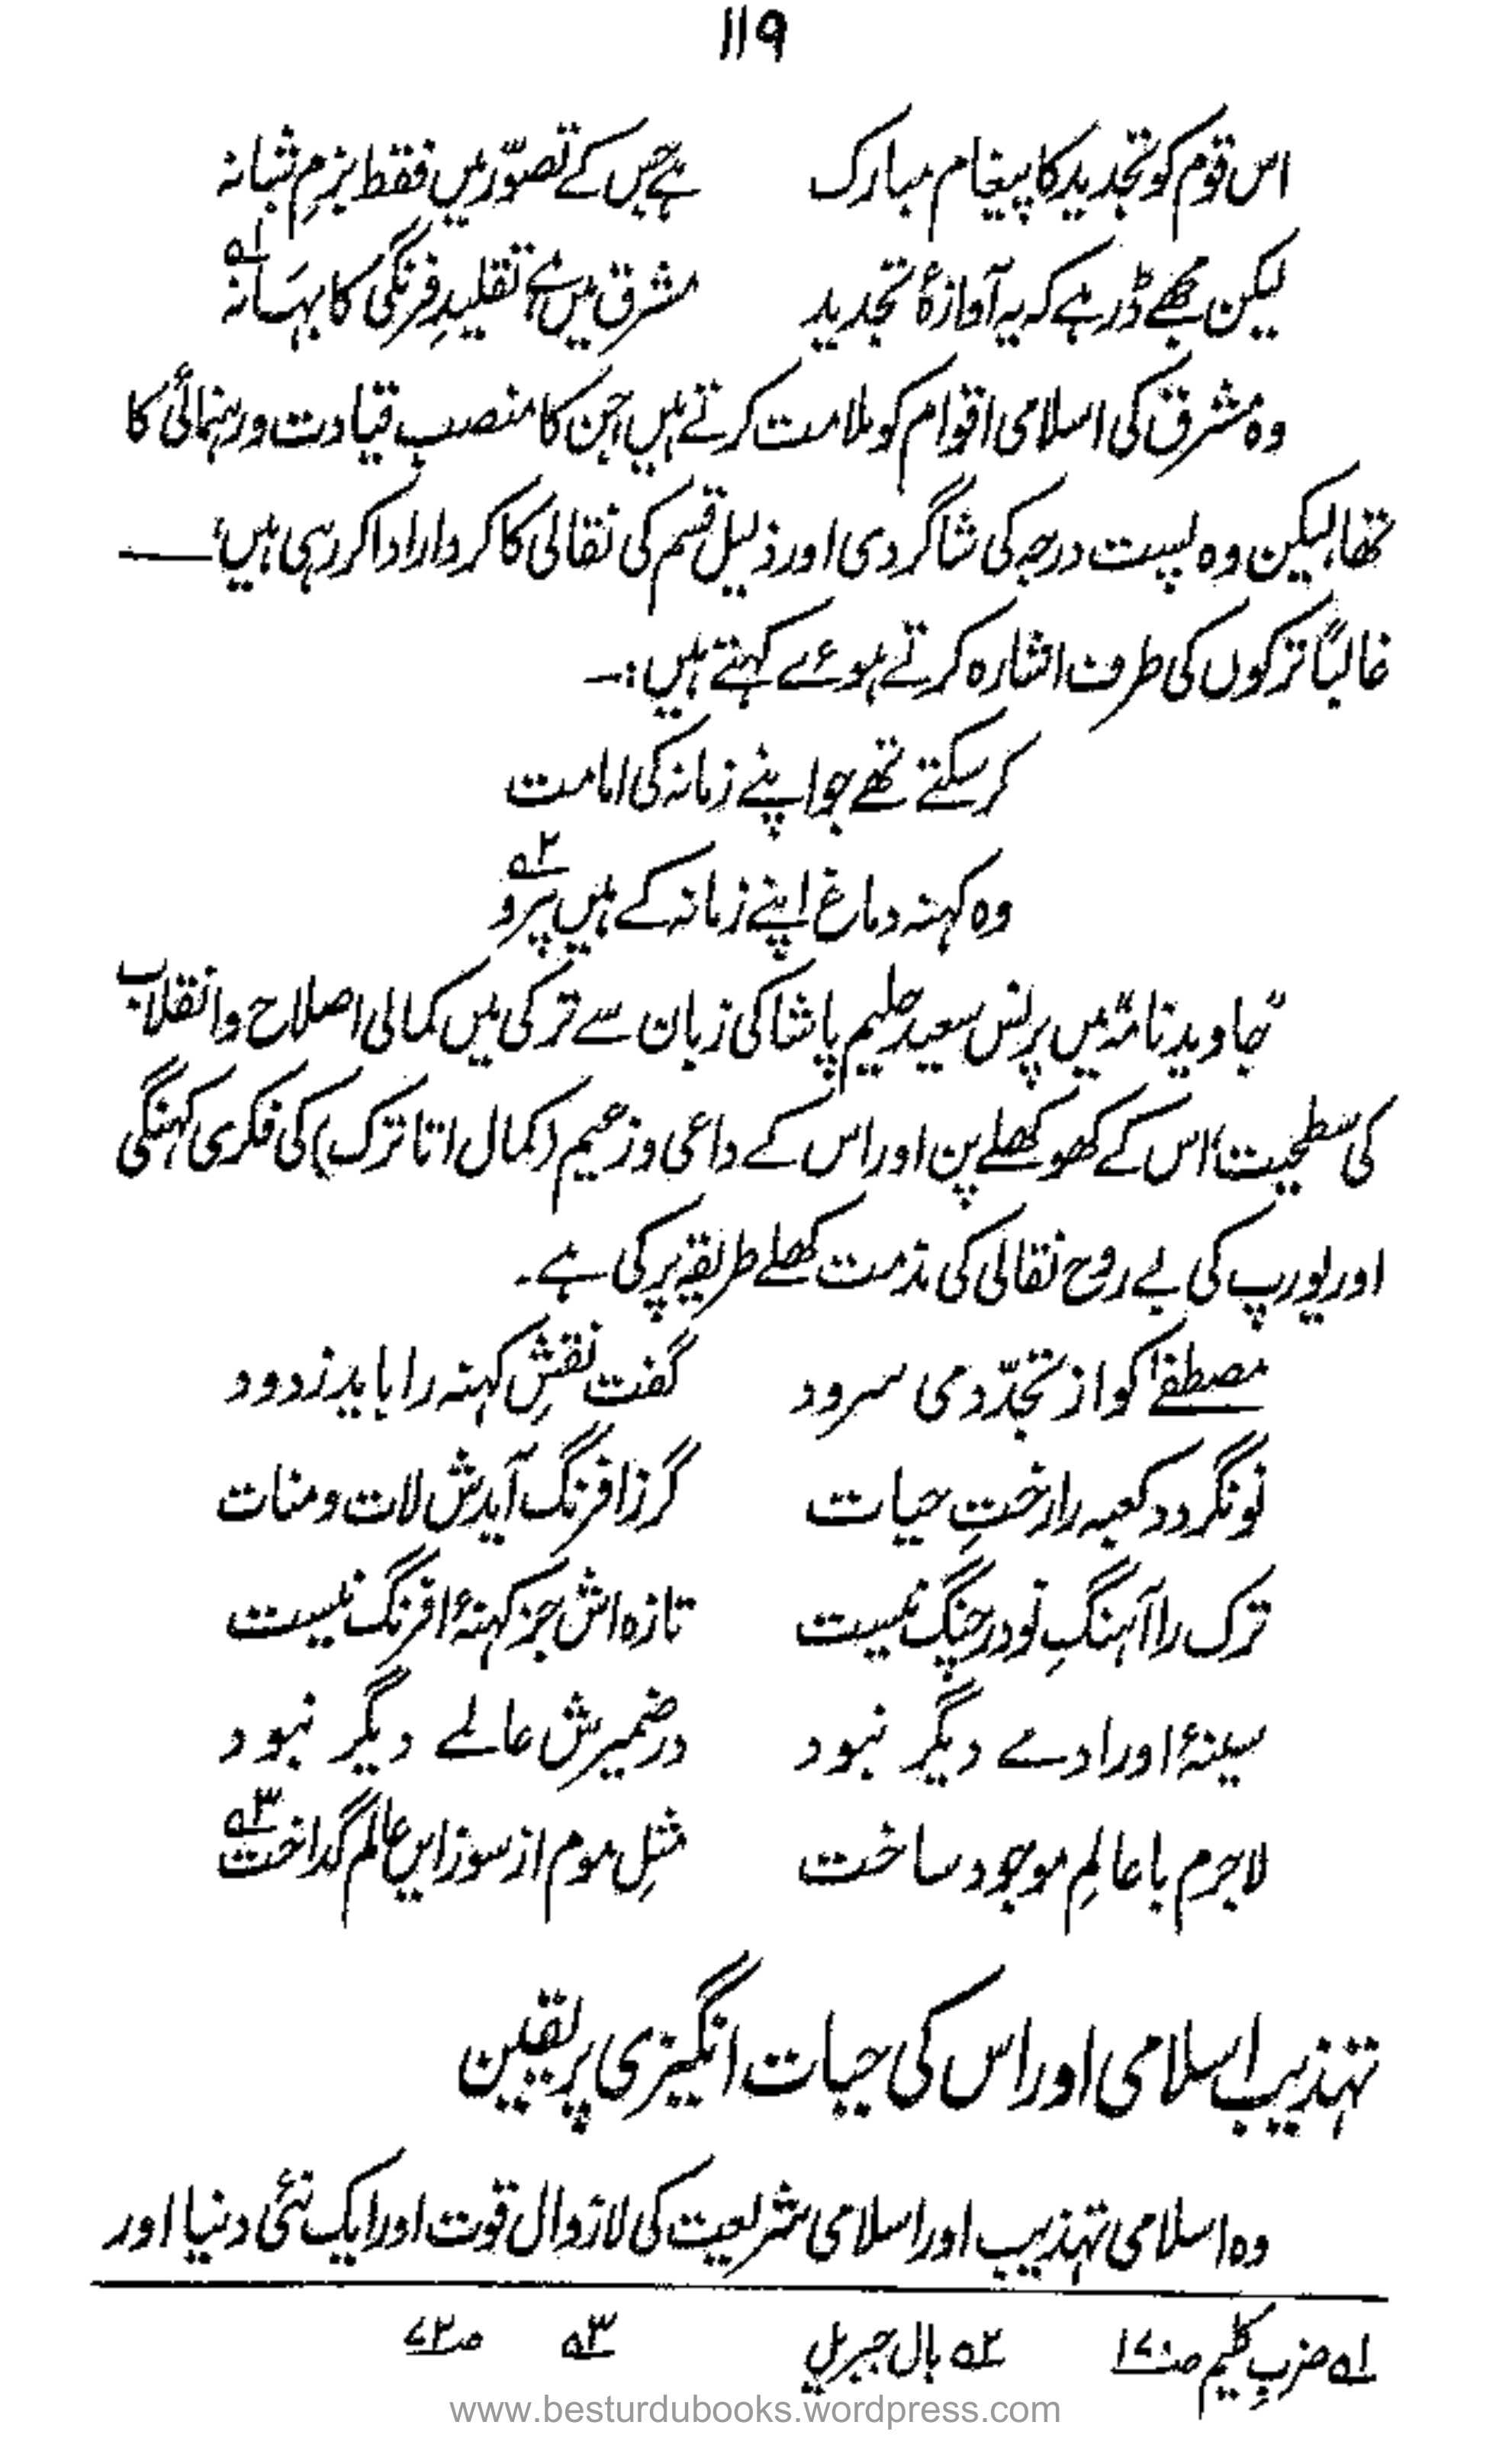 ۱۱۹
اس قوم کو تجدید کا پیغام مبارک ہے جس کے تصوّر میں فقط بزمِ شبانہ
لیکن مجھے ڈر ہے کہ یہ آوازۂ تجدید مشرق میں ہے تقلیدِ فرنگی کا بہَانہ ۱؎
وہ مشرق کی اسلامی اقوام کو ملامت کرتے ہیں جن کا منصب قیادت و رہنمائی کا
تھا، لیکن وہ پست درجہ کی شاگردی اور ذلیل قسم کی نقالی کا کردار ادا کر رہی ہیں، ——
غالباً ترکوں کی طرف اشارہ کرتے ہوئے کہتے ہیں:۔
کر سکتے تھے جو اپنے زمانہ کی امامت
وہ کہنہ دماغ اپنے زمانہ کے ہیں پیرو ۲؎
"جاوید نامہ" میں پرنس سعید حلیم پاشا کی زبان سے ترکی میں کمالی اصلاح و انقلاب
کی سطحیت، اس کے کھوکھلے پن اور اس کے داعی و زعیم (کمال اتاترک) کی فکری کہنگی
اور یورپ کی بے روح نقالی کی مذمت کھلے طریقہ پر کی ہے۔
مصطفےٰ کو از تجدّد می سرود گفت نقشِ کہنہ را باید زدود
نو نگردد کعبہ را رختِ حیات گر ز افرنگ آیدش لات و منات
ترک را آہنگِ نو در چنگ نیست تازہ اش جز کہنۂ افرنگ نیست
سینۂ او را دمے دیگر نبود در ضمیرش عالمے دیگر نبود
لاجرم با عالمِ موجود ساخت مثلِ موم از سوز ایں عالم گداخت ۳؎
تہذیب اسلامی اور اس کی حیات انگیزی پر یقین
وہ اسلامی تہذیب اور اسلامی شریعت کی لازوال قوت اور ایک نئی دنیا اور
۱؎ ضربِ کلیم صـ۱۷۰ ۲؎ بال جبریل ۳؎ صـ۷۲
www.besturdubooks.wordpress.com